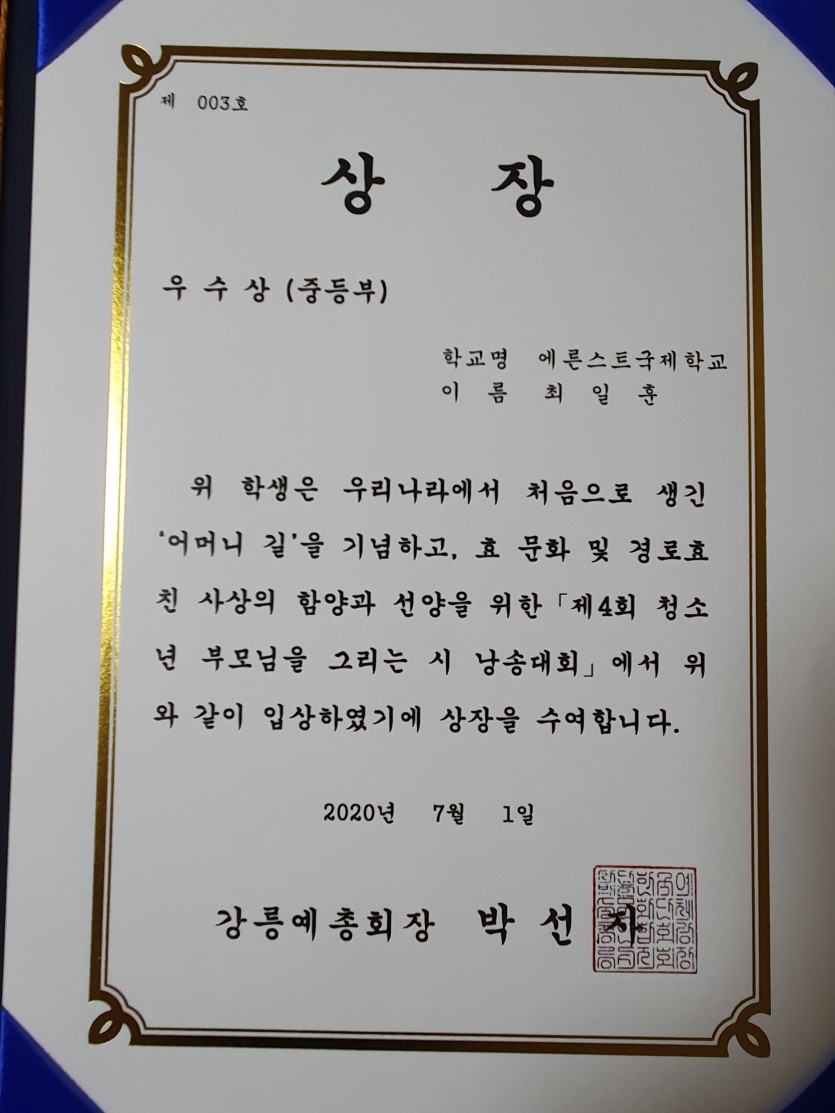 제 003호
상 장
우 수 상 (중등부)
학교명 에른스트국제학교
이 름 최 일 훈
위 학생은 우리나라에서 처음으로 생긴
'어머니 길'을 기념하고, 효 문화 및 경로효
친 사상의 함양과 선양을 위한 「제4회 청소
년 부모님을 그리는 시 낭송대회」에서 위
와 같이 입상하였기에 상장을 수여합니다.
2020년 7월 1일
강릉예총회장 박 선 자